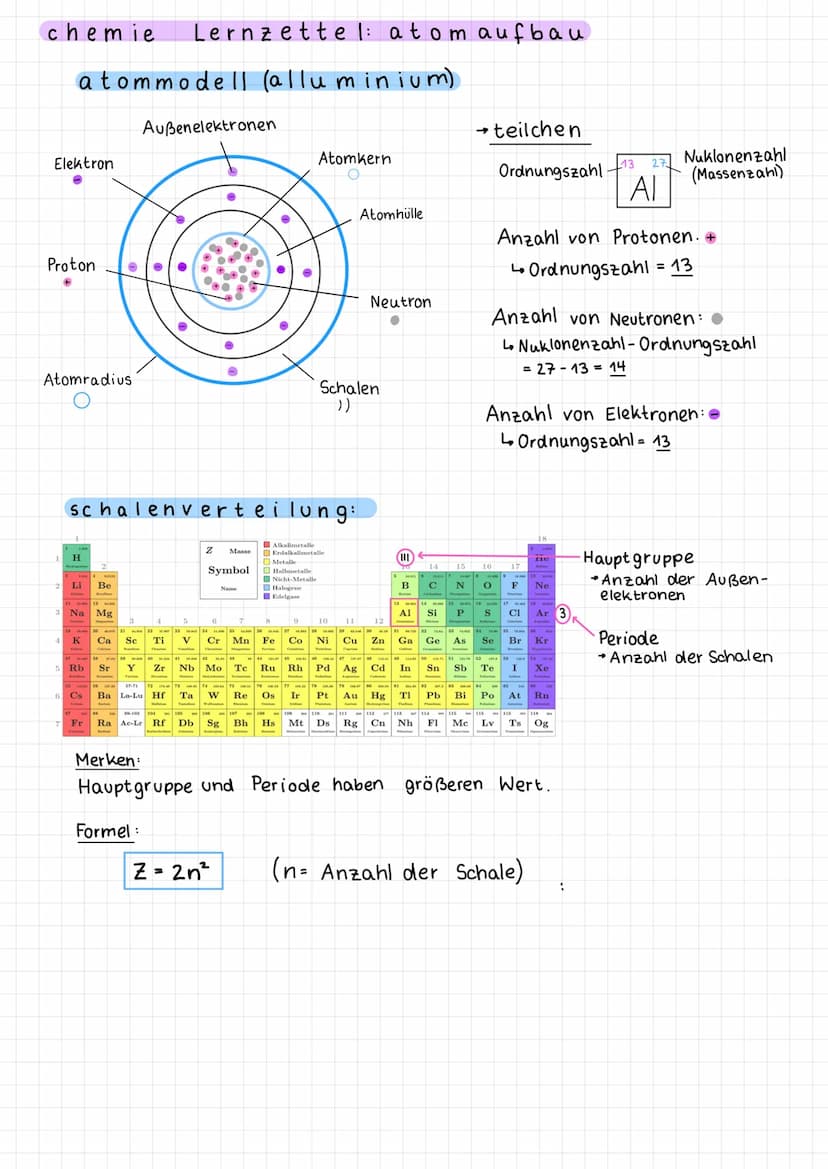 chemie Lernzettel: atomaufbau
atommodell (alluminium)
Außenelektronen
Elektron
Atomkern
Atomhülle
Proton
Neutron
Atomradius
Schalen
→ teilchen
Ordnungszahl
13 27
Al
Nuklonenzahl
(Massenzahl)
Anzahl von Protonen.
↳ Ordnungszahl = 13
Anzahl von Neutronen:
↳ Nuklonenzahl - Ordnungszahl
= 27 - 13 = 14
Anzahl von Elektronen:
↳ Ordnungszahl = 13
schalenverteilung:
Z Masse
Symbol
Name
Alkalimetalle
Erdalkalimetalle
Metalle
Halbmetalle
Nicht-Metalle
Halogene
Edelgase
1 18
1 H He
2 III 14 15 16 17
2 Li Be B C N O F Ne
3 Na Mg Al Si P S Cl Ar 3
3 4 5 6 7 8 9 10 11 12
4 K Ca Sc Ti V Cr Mn Fe Co Ni Cu Zn Ga Ge As Se Br Kr
5 Rb Sr Y Zr Nb Mo Tc Ru Rh Pd Ag Cd In Sn Sb Te I Xe
6 Cs Ba La-Lu Hf Ta W Re Os Ir Pt Au Hg Tl Pb Bi Po At Rn
7 Fr Ra Ac-Lr Rf Db Sg Bh Hs Mt Ds Rg Cn Nh Fl Mc Lv Ts Og
Hauptgruppe
→ Anzahl der Außen-
elektronen
Periode
→ Anzahl der Schalen
Merken:
Hauptgruppe und Periode haben größeren Wert.
Formel:
Z = 2n²
(n= Anzahl der Schale)
: